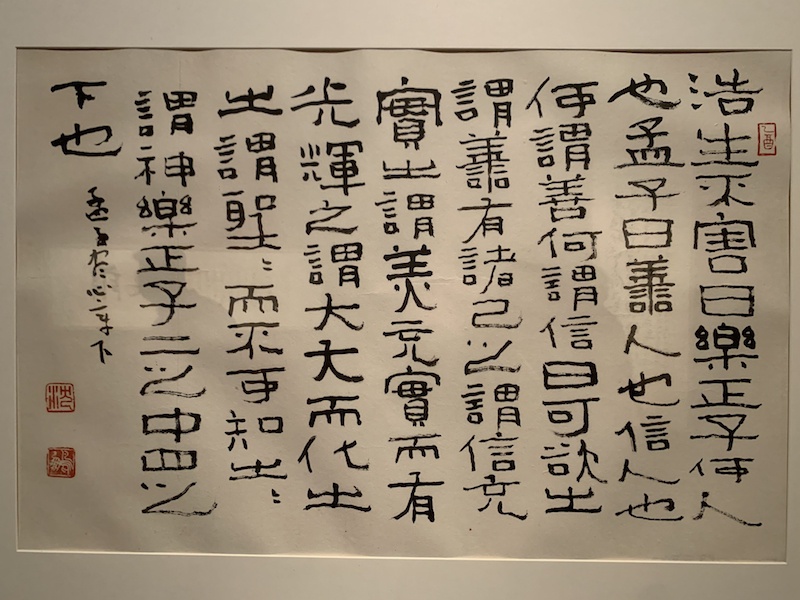 乙酉
浩生不害曰樂正子何人
也孟子曰善人也信人也
何謂善何謂信曰可欲之
謂善有諸己之謂信充
實之謂美充實而有
光輝之謂大大而化之
之謂聖〻而不可知之〻
謂神樂正子二之中四之
下也
孟子尽心章下
沈